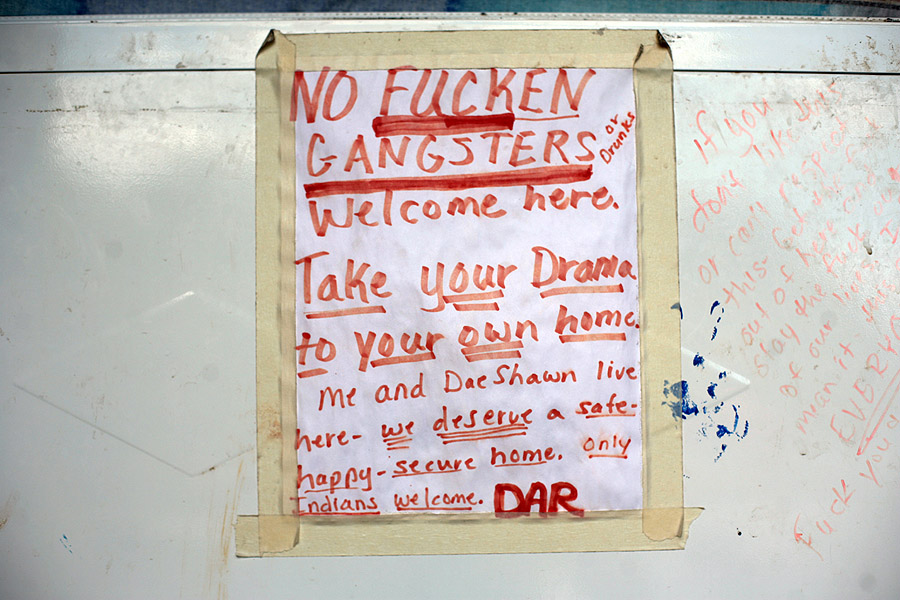 NO FUCKEN
GANGSTERS
or
Drunks
Welcome here.
Take your Drama
to your own home.
Me and DaeShawn live
here- we deserve a safe-
happy- secure home. only
Indians welcome. DAR
If you
don't like
or can't
this- Get the
out of here and
stay the fuck out
of our lives
mean it
EVERY
Fuck you